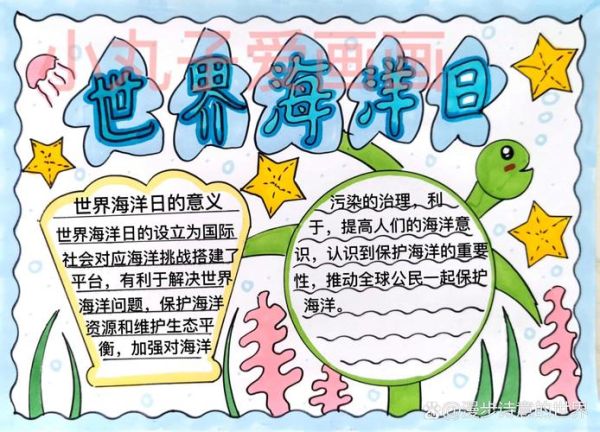 小丸子爱画画
世界海洋日
世界海洋日的意义
世界海洋日的设立为国际
社会对应海洋挑战搭建了
平台，有利于解决世界
海洋问题，保护海洋
资源和维护生态平
衡，加强对海洋
污染的治理，利
于，提高人们的海洋意
识，认识到保护海洋的重要
性，推动全球公民一起保护
海洋。
@漫步诗意的世界